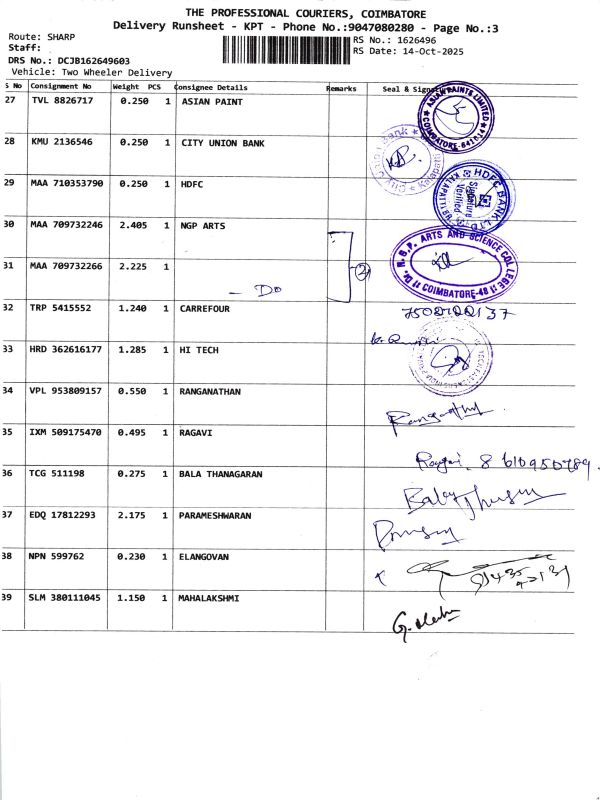 THE PROFESSIONAL COURIERS, COIMBATORE
Delivery Runsheet - KPT - Phone No.:9047080280 - Page No.:3
Route: SHARP
RS No.: 1626496
Staff:
RS Date: 14-Oct-2025
DRS No.: DCJB162649603
Vehicle: Two Wheeler Delivery
S No Consignment No Weight PCS Consignee Details Remarks Seal & Sign
27 TVL 8826717 0.250 1 ASIAN PAINT
ASIAN PAINTS LIMITED
COIMBATORE-641014
28 KMU 2136546 0.250 1 CITY UNION BANK
29 MAA 710353790 0.250 1 HDFC
HDFC BANK LTD
KALAPATTI BR
Signature
Verified
30 MAA 709732246 2.405 1 NGP ARTS
Dr. N.G.P. ARTS AND SCIENCE COLLEGE
COIMBATORE-48
31 MAA 709732266 2.225 1 - Do
2
32 TRP 5415552 1.240 1 CARREFOUR
33 HRD 362616177 1.285 1 HI TECH
34 VPL 953809157 0.550 1 RANGANATHAN
Ranganathan
35 IXM 509175470 0.495 1 RAGAVI
Ragavi 8610950789
36 TCG 511198 0.275 1 BALA THANAGARAN
37 EDQ 17812293 2.175 1 PARAMESHWARAN
38 NPN 599762 0.230 1 ELANGOVAN
39 SLM 380111045 1.150 1 MAHALAKSHMI